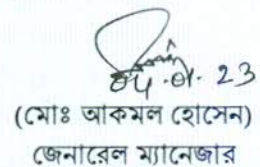 04.01.23
(মোঃ আকমল হোসেন)
জেনারেল ম্যানেজার